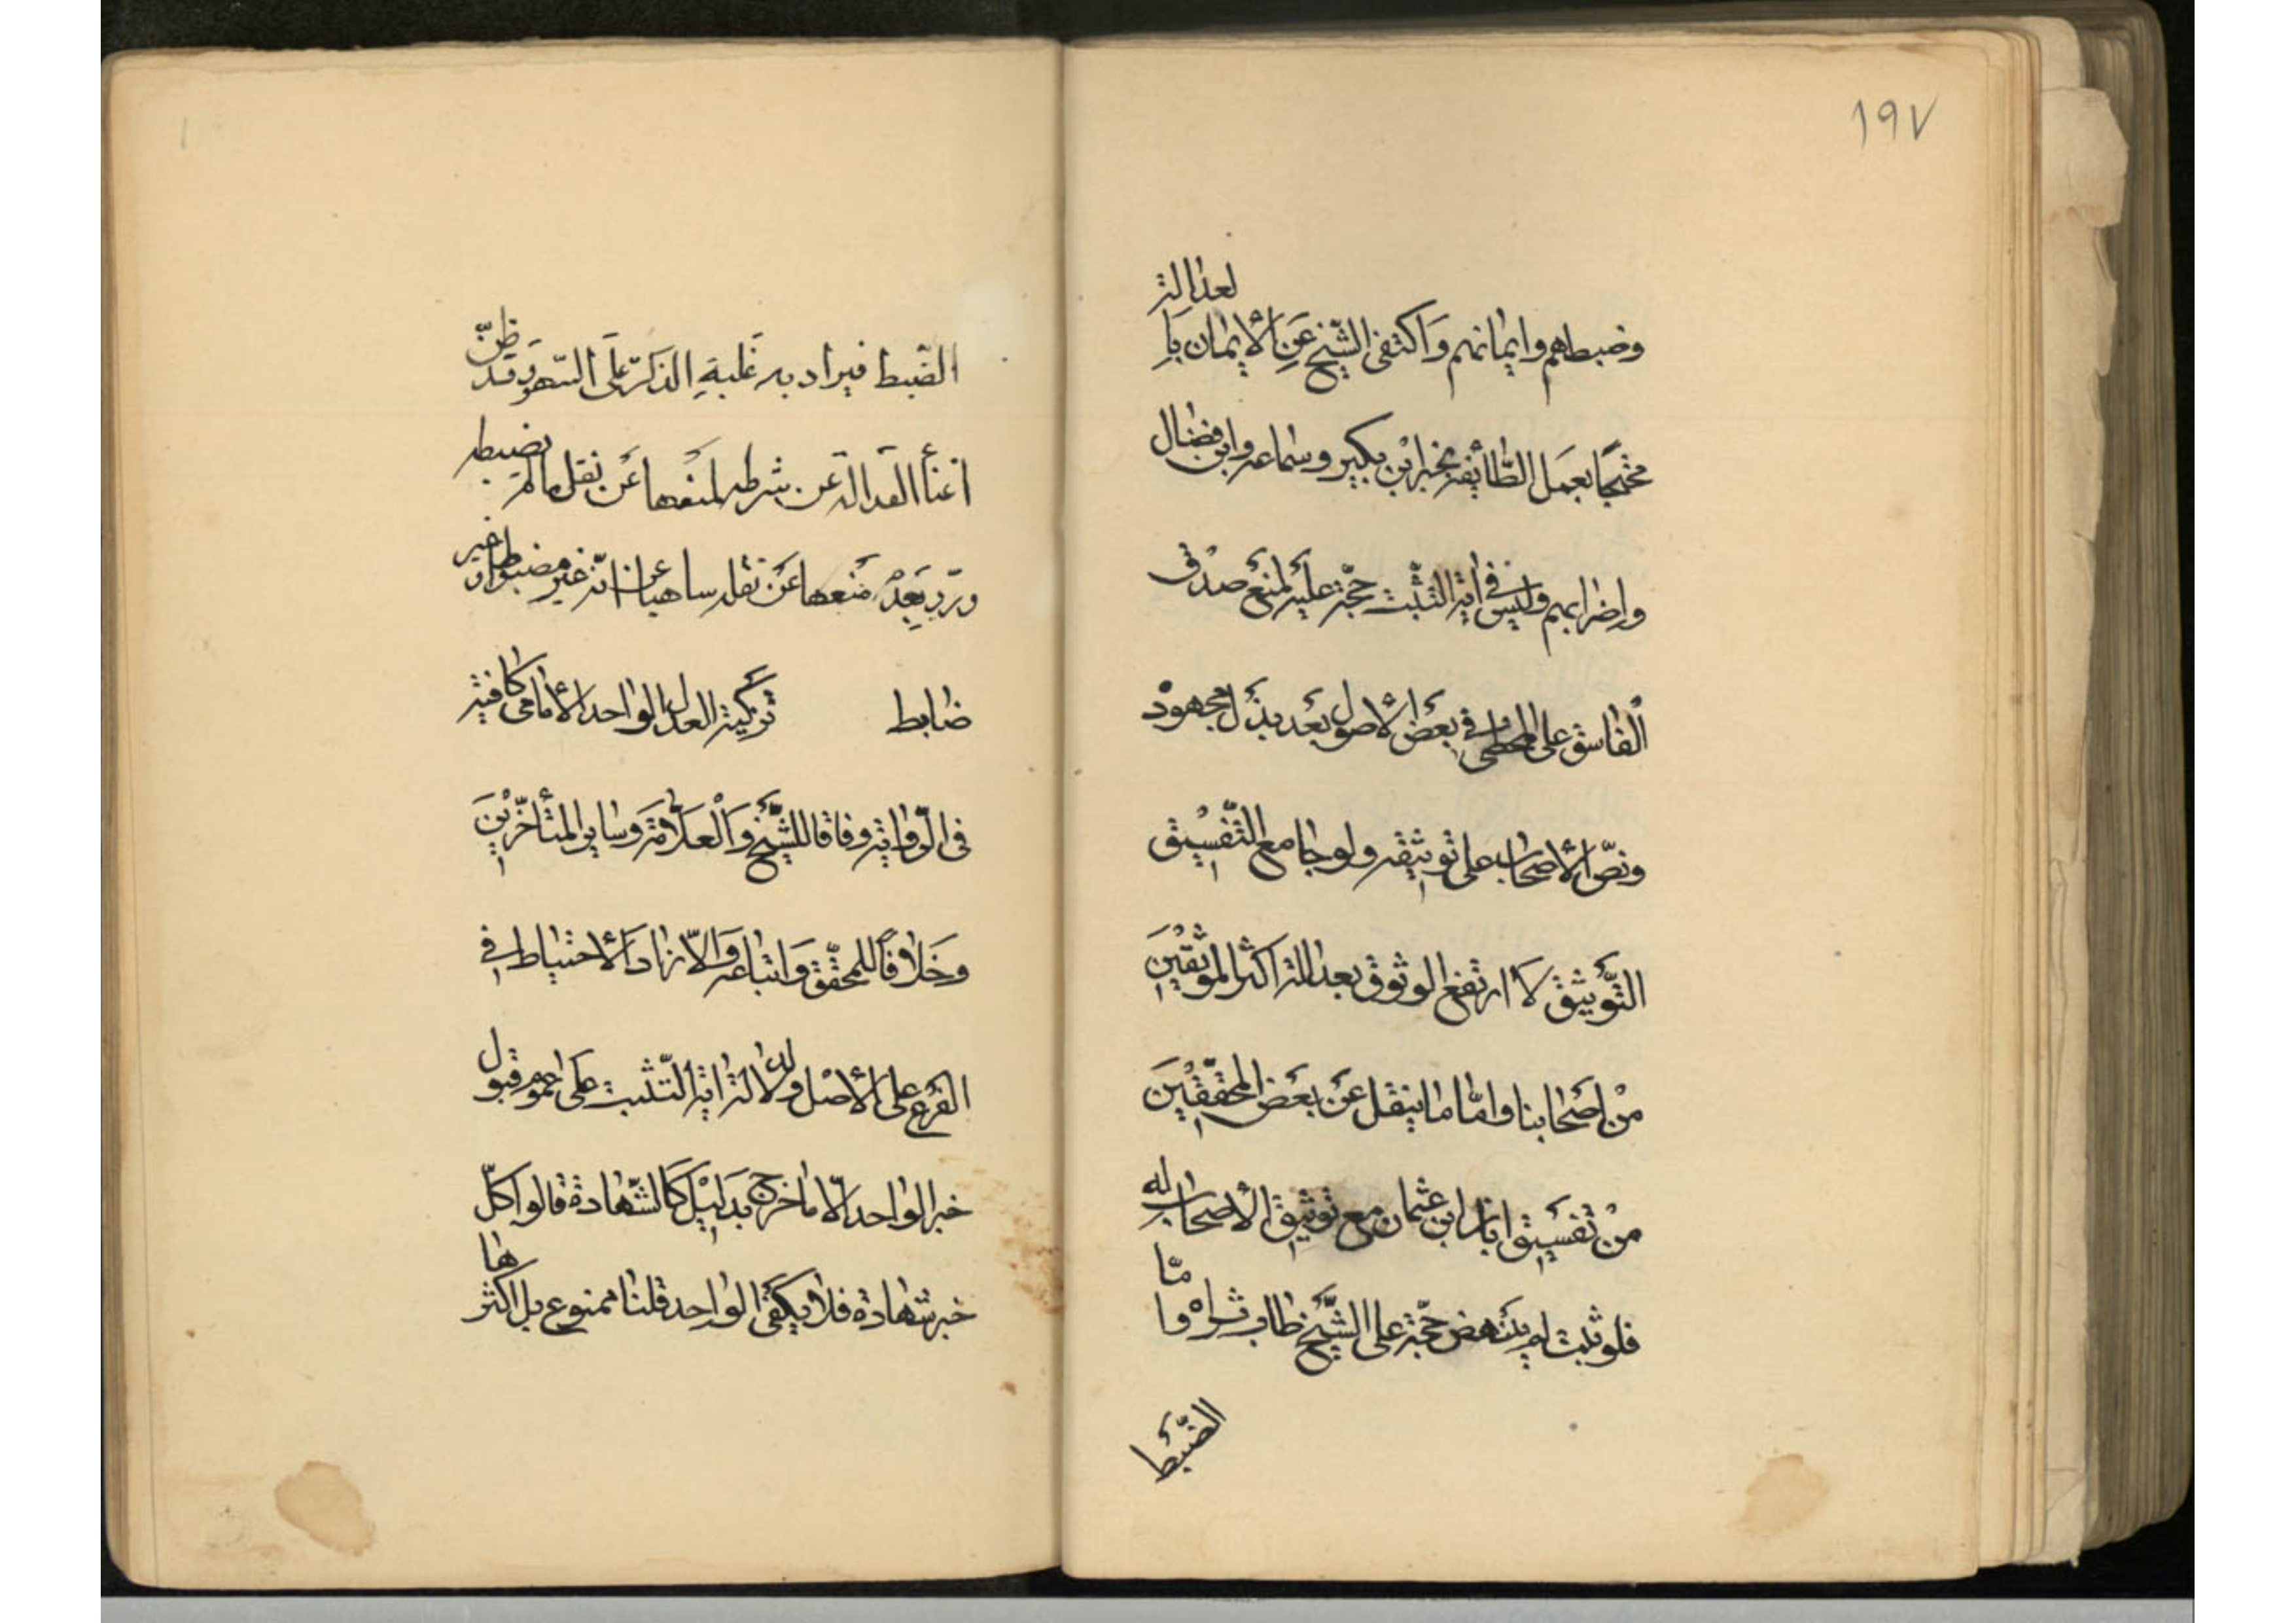 ١٩٧
وضبطهم وايمانهم وَاكتفى الشّيخ عَنِ الأيمان بِالعدالة
محتجًا بعمَل الطّائفة بخبر ابْن بكيرٍ وسماعه وابن فضال
واضرابهم وليس في اية التثبّت حجّة عليه لمنع صدق
الفاسق على المخطى في بعض الأصول بعد بذل مجهودٍ
ونصّ الأصحاب على توثيقه ولو جامع التّفسيق
التّوثيق لارتفع الوثوق بعدالة اكثر الموثقين
منْ اصَحابنا وامّا ما ينقل عن بعض المحقّقين
منْ تفسيق ابان ابن عثمان مع توثيق الأصحاب له
فلو ثبت لم ينهض حجّة على الشّيخ طاب ثراه وامّا
الضّبط
الضّبط فيراد به غَلبةِ الذكر على السّهو وقد ظنّ
اغناء العدالة عن شرطه لمنعها عَن نقل ما لم يضبطه
وردّ بعَدْم منعها عَن نقله ساهيا عن انّه غير مضبوط او غير
ضابط تزكية العدل الواحد الأمامى كافية
فى الرّواية وفاقا للشّيخ وَالْعلّامَة وسايرِ المتأخّريْنَ
وخلافاً للمحقّق وَاتباعه وَالّا زاد الأحتياط في
الفرع على الأصل ولدلالة اية التّثبت على عموم قبول
خبر الواحد الّا ما خرج بدليْل كالشّهادة قالوا كلّ
خبر شهادة فلا يكفى الواحد قلنا ممنوع بل اكثرها